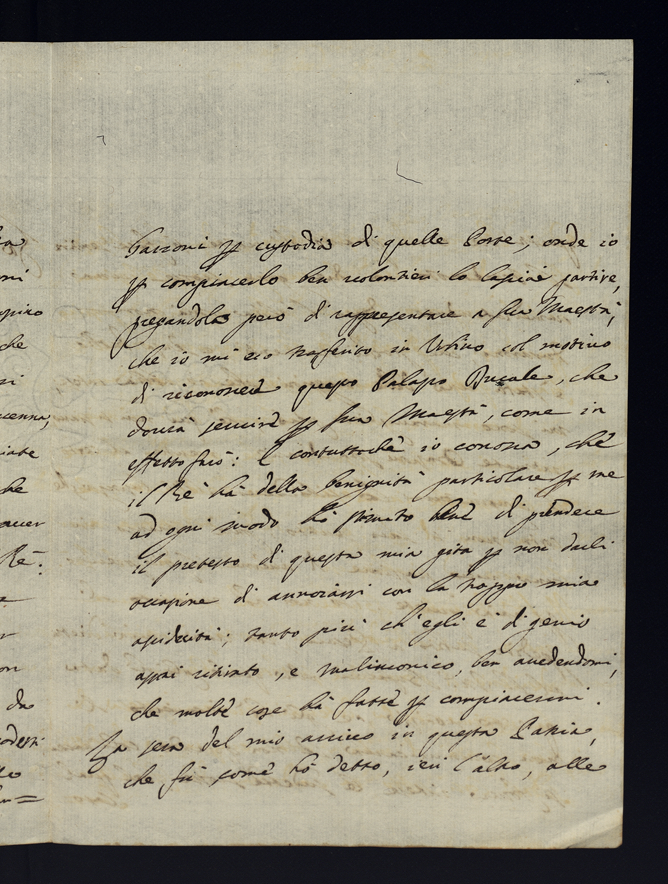 Garzoni p custodia di quelle Porte; onde io
p compiacerlo ben volontieri lo lasciai partire,
pregandola però di rappresentare a Sua Maestà,
che io mi ero trasferito in Urbino col motivo
di riconoscere questo Palazzo Ducale, che
dovrà servire p Sua Maestà, come in
effetto farò: E contuttochè io conosca, che
il Rè hà della benignità particolare p me
ad ogni modo hò stimato bene di prendere
il pretesto di questa mia gita p non darli
occasione di annoiarsi con la troppo mia
assiduità; tanto più ch'egli è di genio
assai ritirato, e malinconico, ben avedendomi,
che molte cose hà fatte p compiacermi.
La sera del mio arrivo in questa Patria,
che fù come hò detto, ieri l'altro, alle